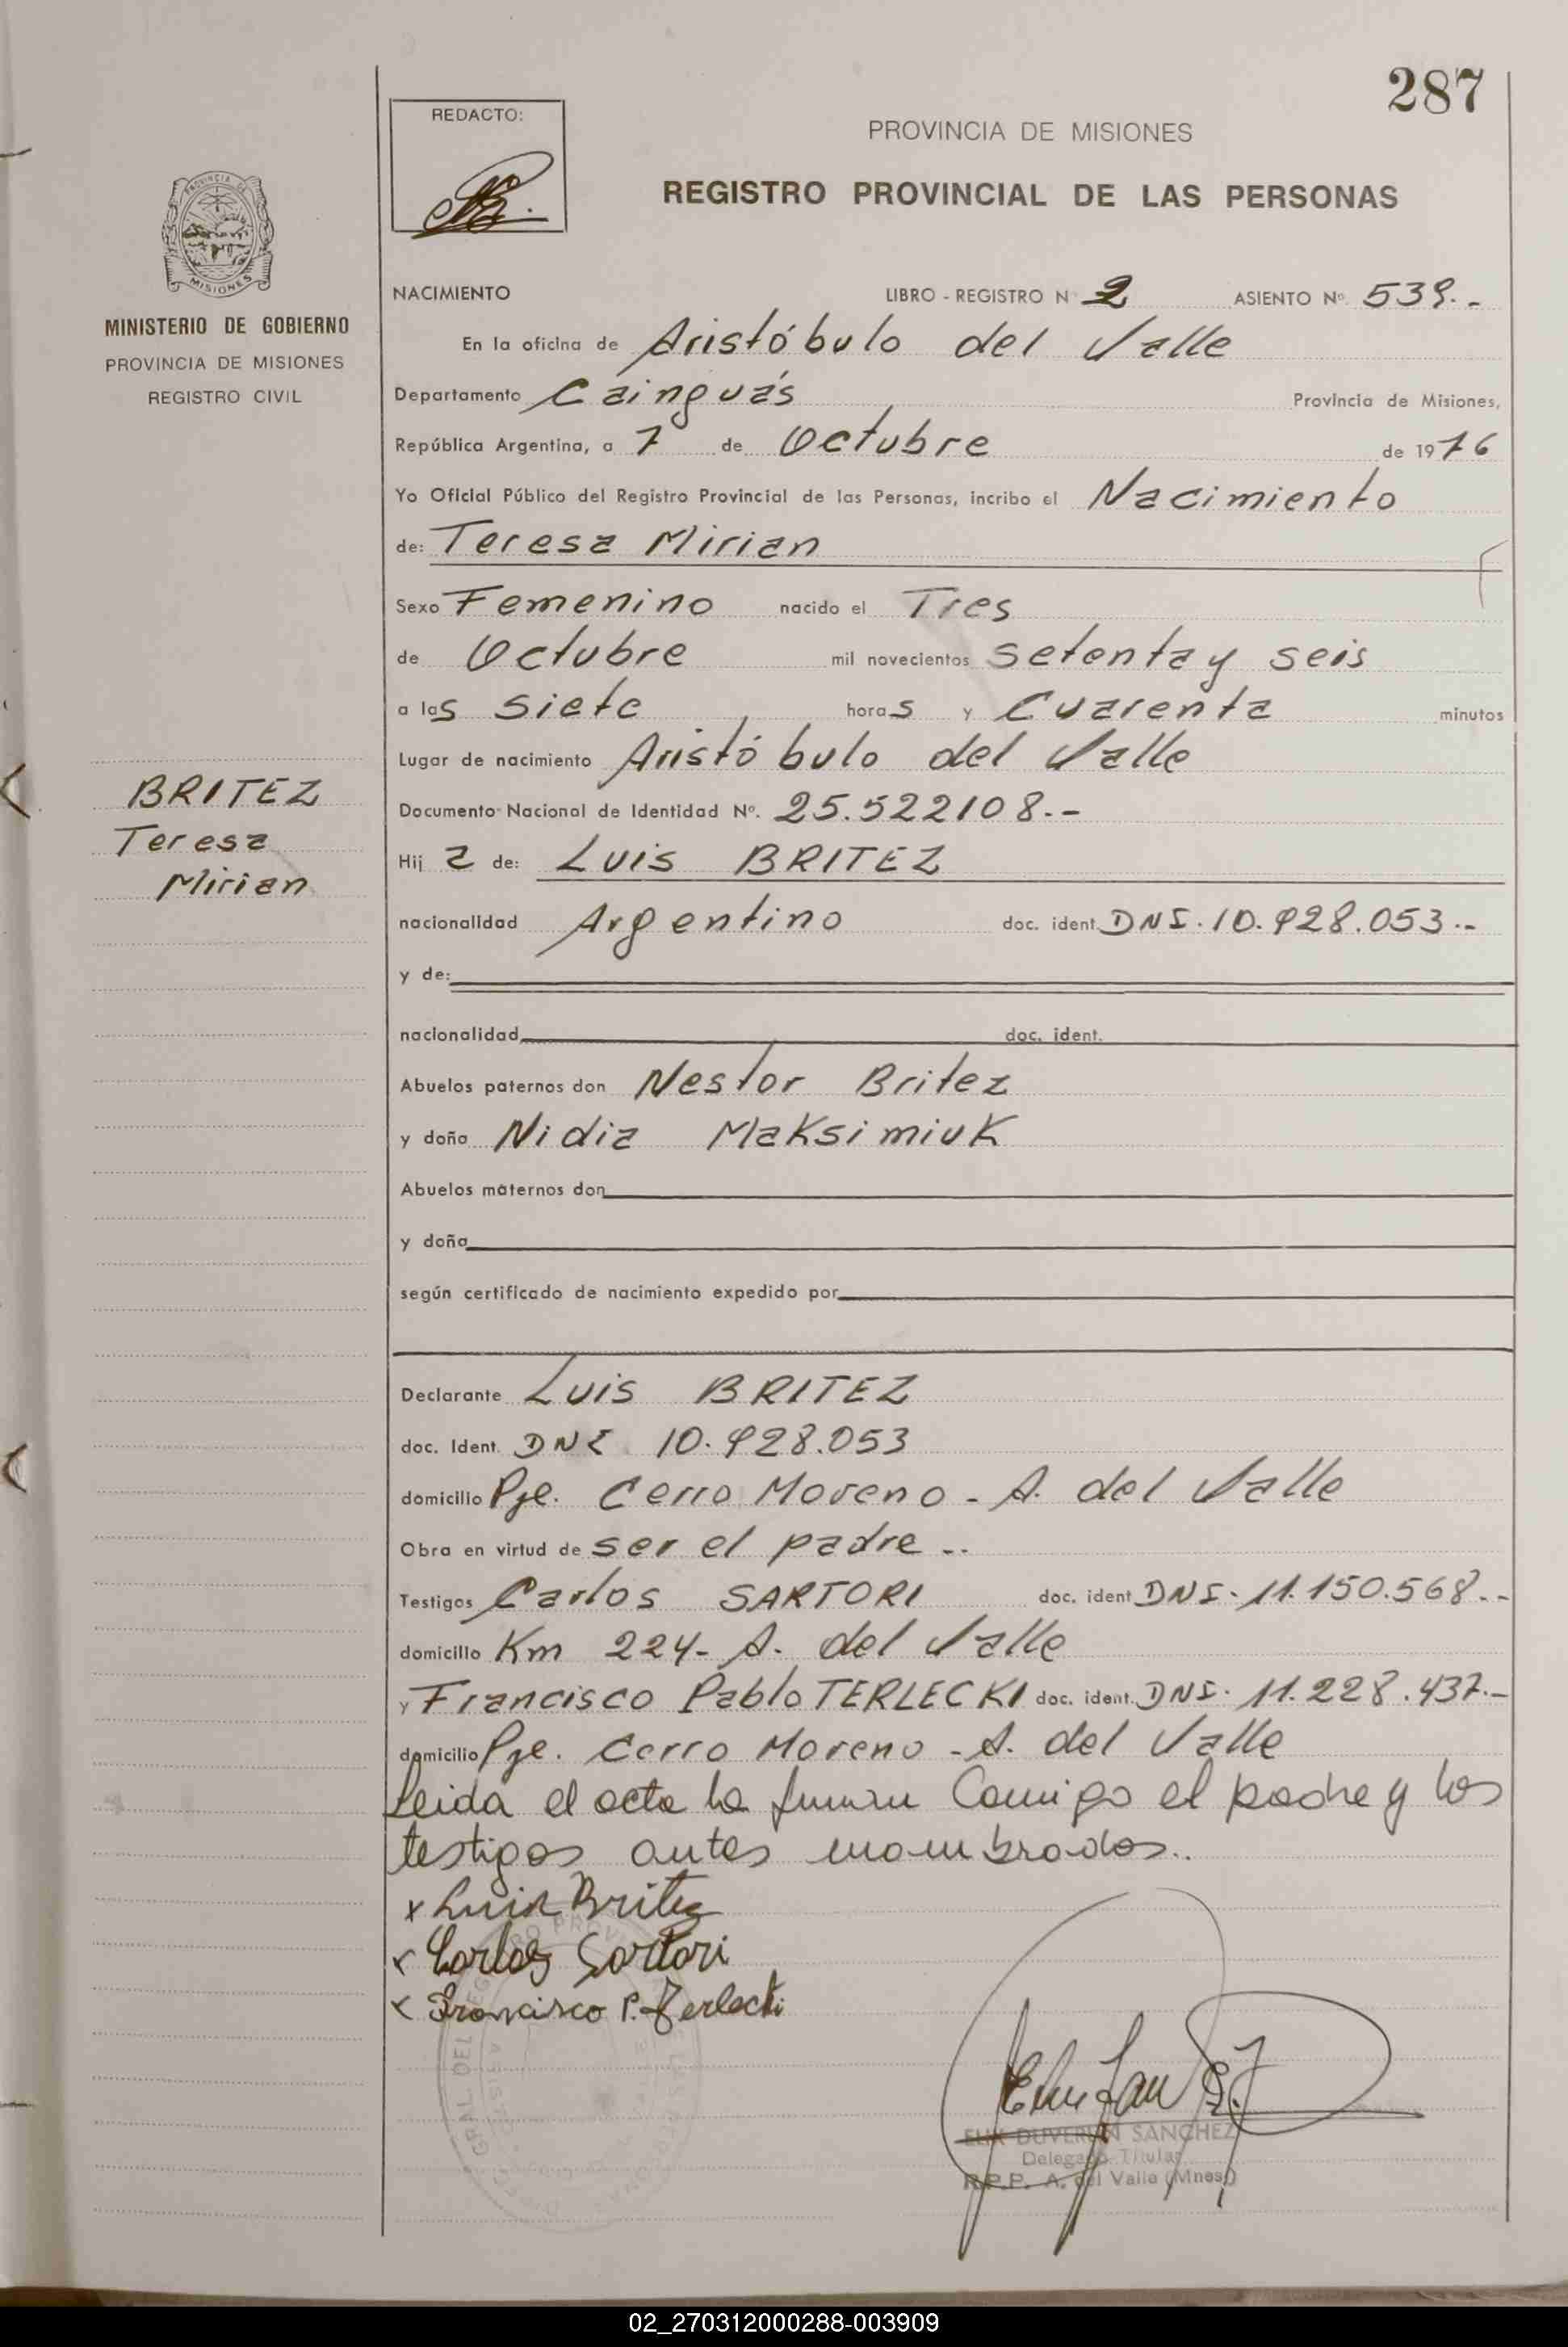 287
REDACTO:
PROVINCIA DE MISIONES
REGISTRO PROVINCIAL DE LAS PERSONAS
PROVINCIA DE
MISIONES
MINISTERIO DE GOBIERNO
PROVINCIA DE MISIONES
REGISTRO CIVIL
BRITEZ
Teresa
Mirian
NACIMIENTO LIBRO - REGISTRO N 2 ASIENTO Nº 539.-
En la oficina de Aristóbulo del Valle
Departamento Cainguás Provincia de Misiones,
República Argentina, a 7 de Octubre de 1976
Yo Oficial Público del Registro Provincial de las Personas, incribo el Nacimiento
de: Teresa Mirian
Sexo Femenino nacido el Tres
de Octubre mil novecientos setenta y seis
a las siete horas y Cuarenta minutos
Lugar de nacimiento Aristóbulo del Valle
Documento Nacional de Identidad Nº. 25.522108.-
Hij a de: Luis BRITEZ
nacionalidad Argentino doc. ident. DNI. 10.928.053.-
y de:
nacionalidad doc. ident.
Abuelos paternos don Nestor Britez
y doña Nidia Maksimiuk
Abuelos maternos don
y doña
según certificado de nacimiento expedido por
Declarante Luis BRITEZ
doc. Ident. DNI 10.928.053
domicilio Pje. Cerro Moreno - A. del Valle
Obra en virtud de ser el padre..
Testigos Carlos SARTORI doc. ident DNI. 11.150.568.-
domicilio Km 224- A. del Valle
y Francisco Pablo TERLECKI doc. ident. DNI. 11.228.437.-
domicilio Pje. Cerro Moreno - A. del Valle
Leida el acta la firman Comigo el padre y los
testigos antes nombrados..
x Luis Britez
x Carlos Sartori
x Francisco P. Terlecki
DUVERLAN SANCHEZ
Delegado Titular
R.P.P. A. del Valle (Mnes.)
02_270312000288-003909